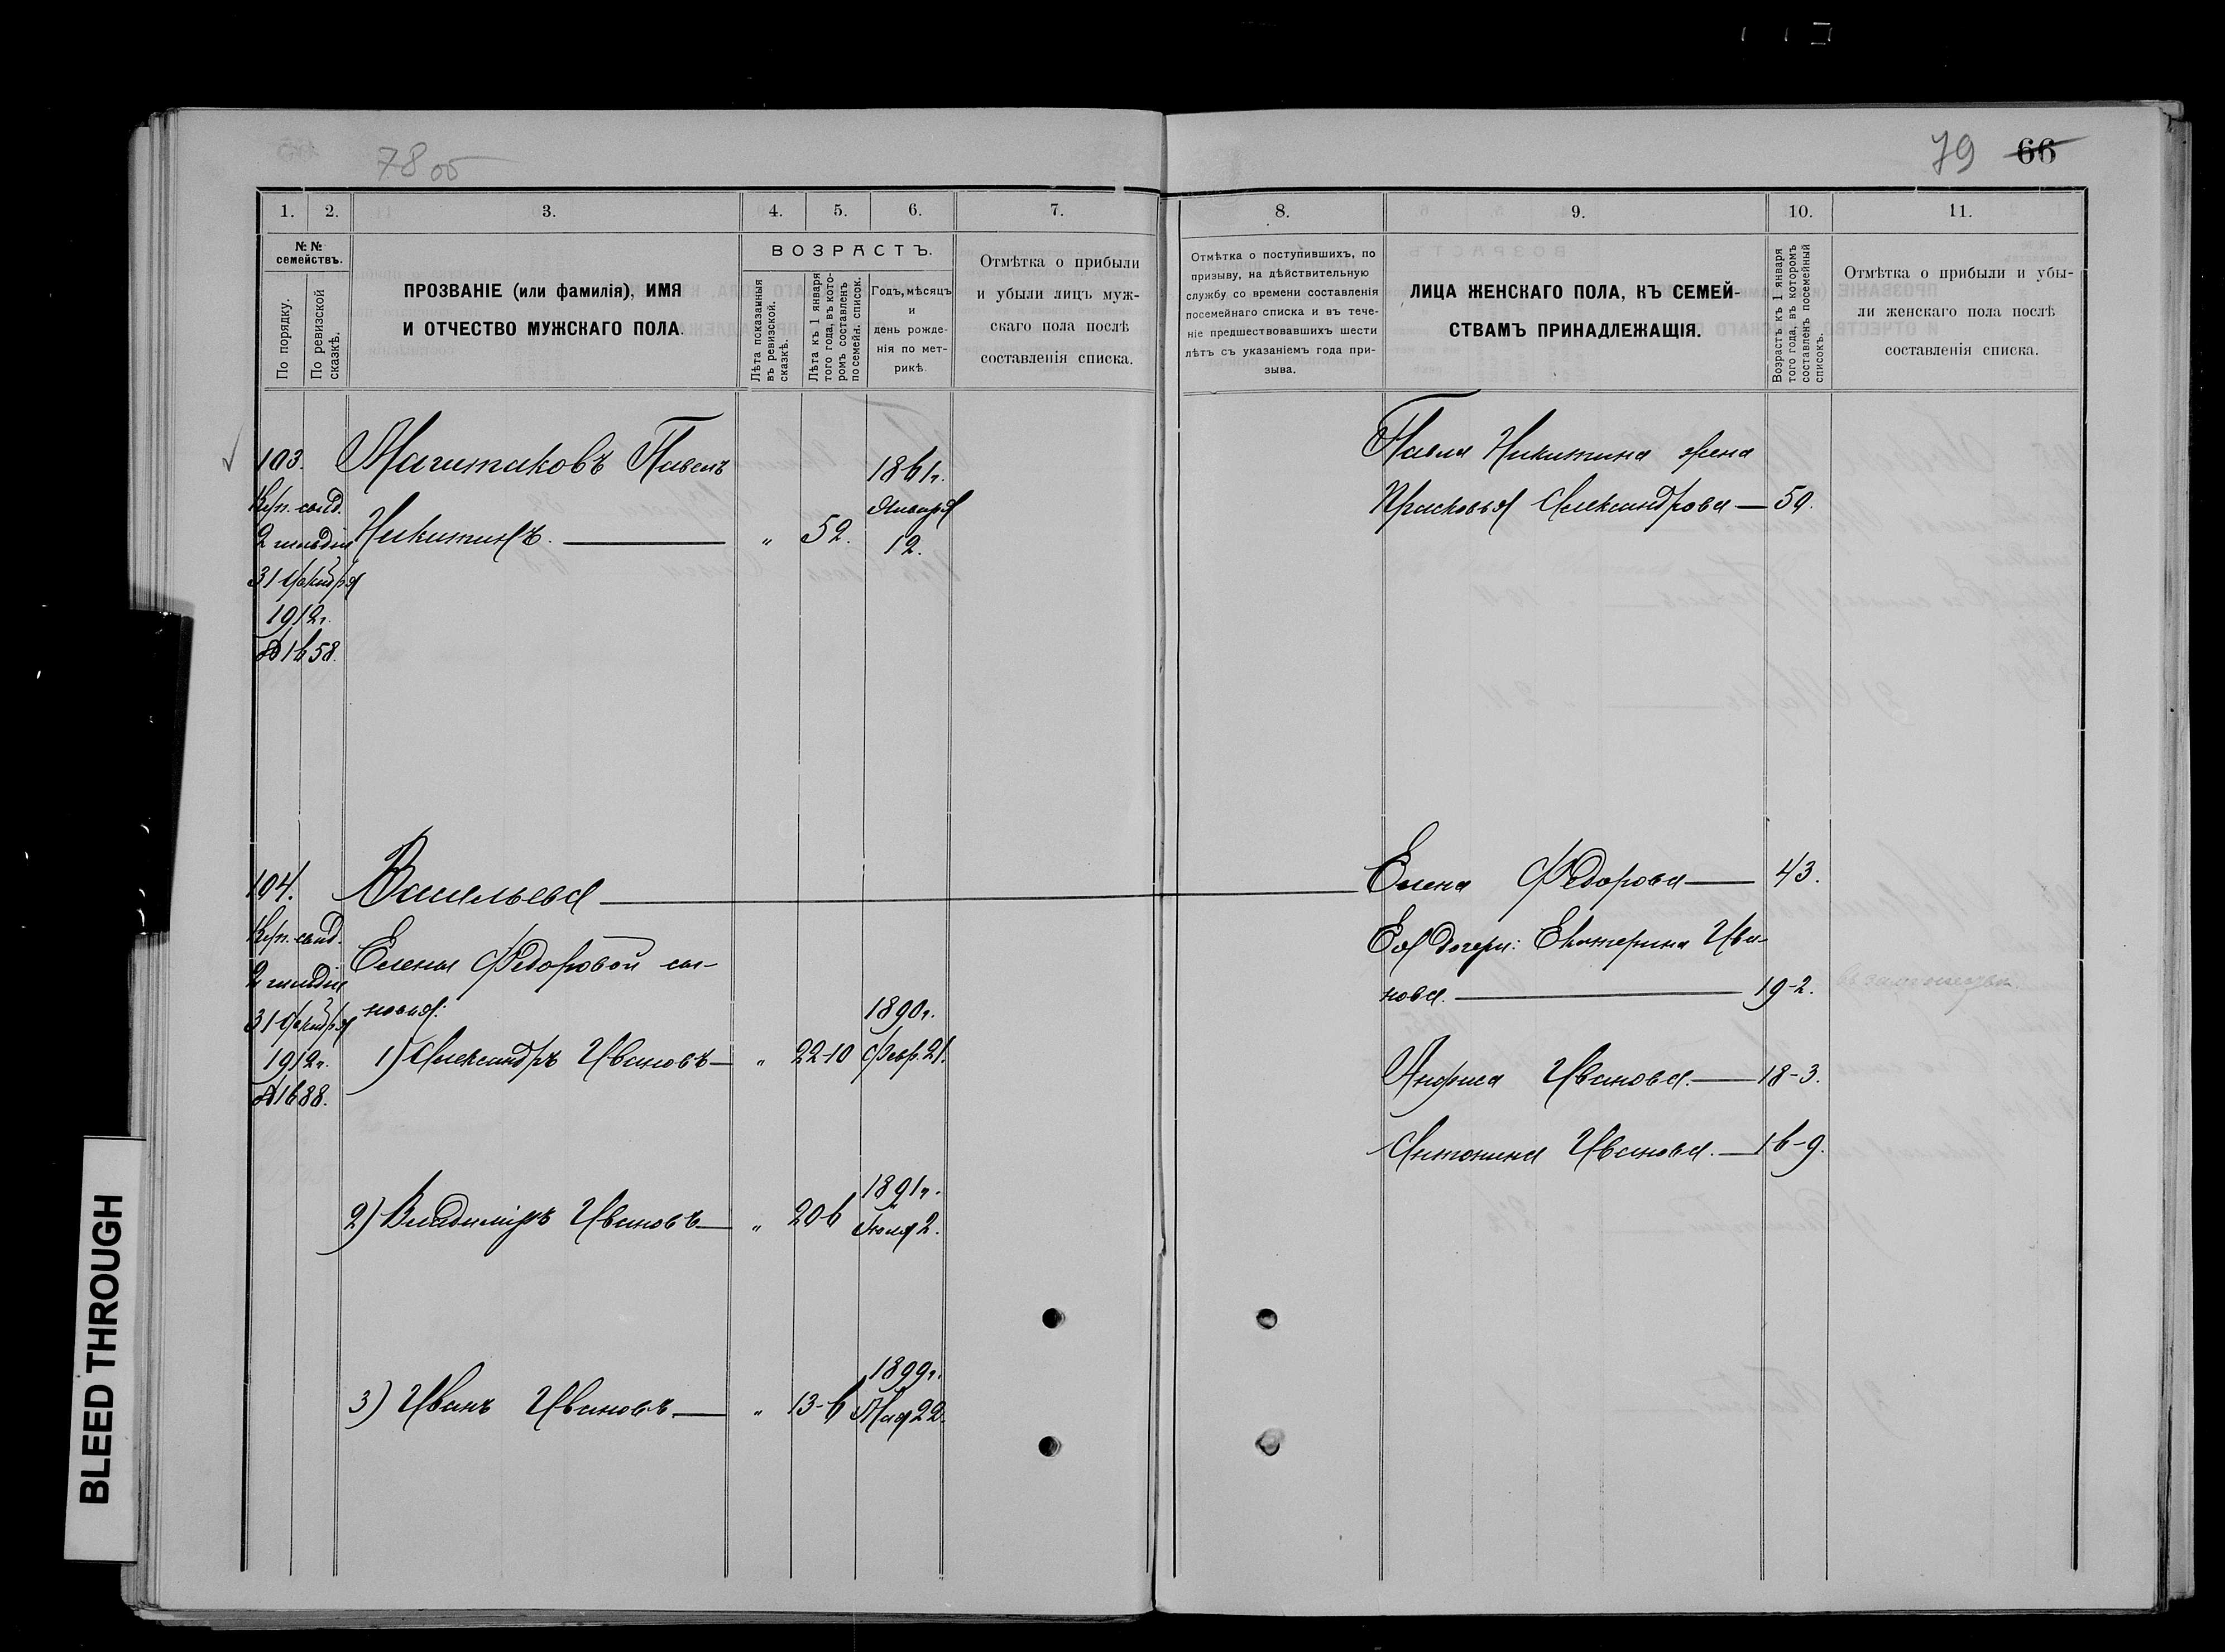 78 об
79 66
1. 2. 3. 4. 5. 6. 7.
№ №
семействъ.
По порядку.
По ревизской
сказкѣ.
ПРОЗВАНІЕ (или фамилія), ИМЯ
И ОТЧЕСТВО МУЖСКАГО ПОЛА.
ВОЗРАСТЪ.
Лѣта показанныя
въ ревизской.
сказкѣ.
Лѣта къ 1 января
того года, въ кото-
ромъ составленъ
посемейн. список.
Годъ, мѣсяцъ
и
день рожде-
нія по мет-
рикѣ.
Отмѣтка о прибыли
и убыли лицъ муж-
скаго пола послѣ
составленія списка.
103.
Куп. свид.
2 гильдіи
31 Декабря
1912 г.
№ 1658.
Павелъ
Никитинъ. — " 52.
1861 г.
Января
12.
104.
Куп. свид.
2 гильдіи
31 Декабря
1912 г.
№ 1688.
Васильева —
Елены Федоровой сы-
новья:
1) Александръ Ивановъ — " 22-10
1890 г.
Февр. 21.
2) Владиміръ Ивановъ — " 20 6
1891 г.
Іюля 2.
3) Иванъ Ивановъ. — " 13-6
1899 г.
Мая 22.
8. 9. 10. 11.
Отмѣтка о поступившихъ, по
призыву, на дѣйствительную
службу со времени составленія
посемейнаго списка и въ тече-
ніе предшествовавшихъ шести
лѣтъ съ указаніемъ года при-
зыва.
ЛИЦА ЖЕНСКАГО ПОЛА, КЪ СЕМЕЙ-
СТВАМЪ ПРИНАДЛЕЖАЩІЯ.
Возрастъ къ 1 января
того года, въ которомъ
составленъ посемейный
списокъ.
Отмѣтка о прибыли и убы-
ли женскаго пола послѣ
составленія списка.
Павла Никитина жена
Прасковья Александрова — 50.
Елена Федорова — 43.
Ея дочери: Екатерина Ива-
нова. — 19-2. въ замужествѣ.
Анфиса Иванова. — 18-3.
Антонина Иванова. — 16-9.
BLEED THROUGH